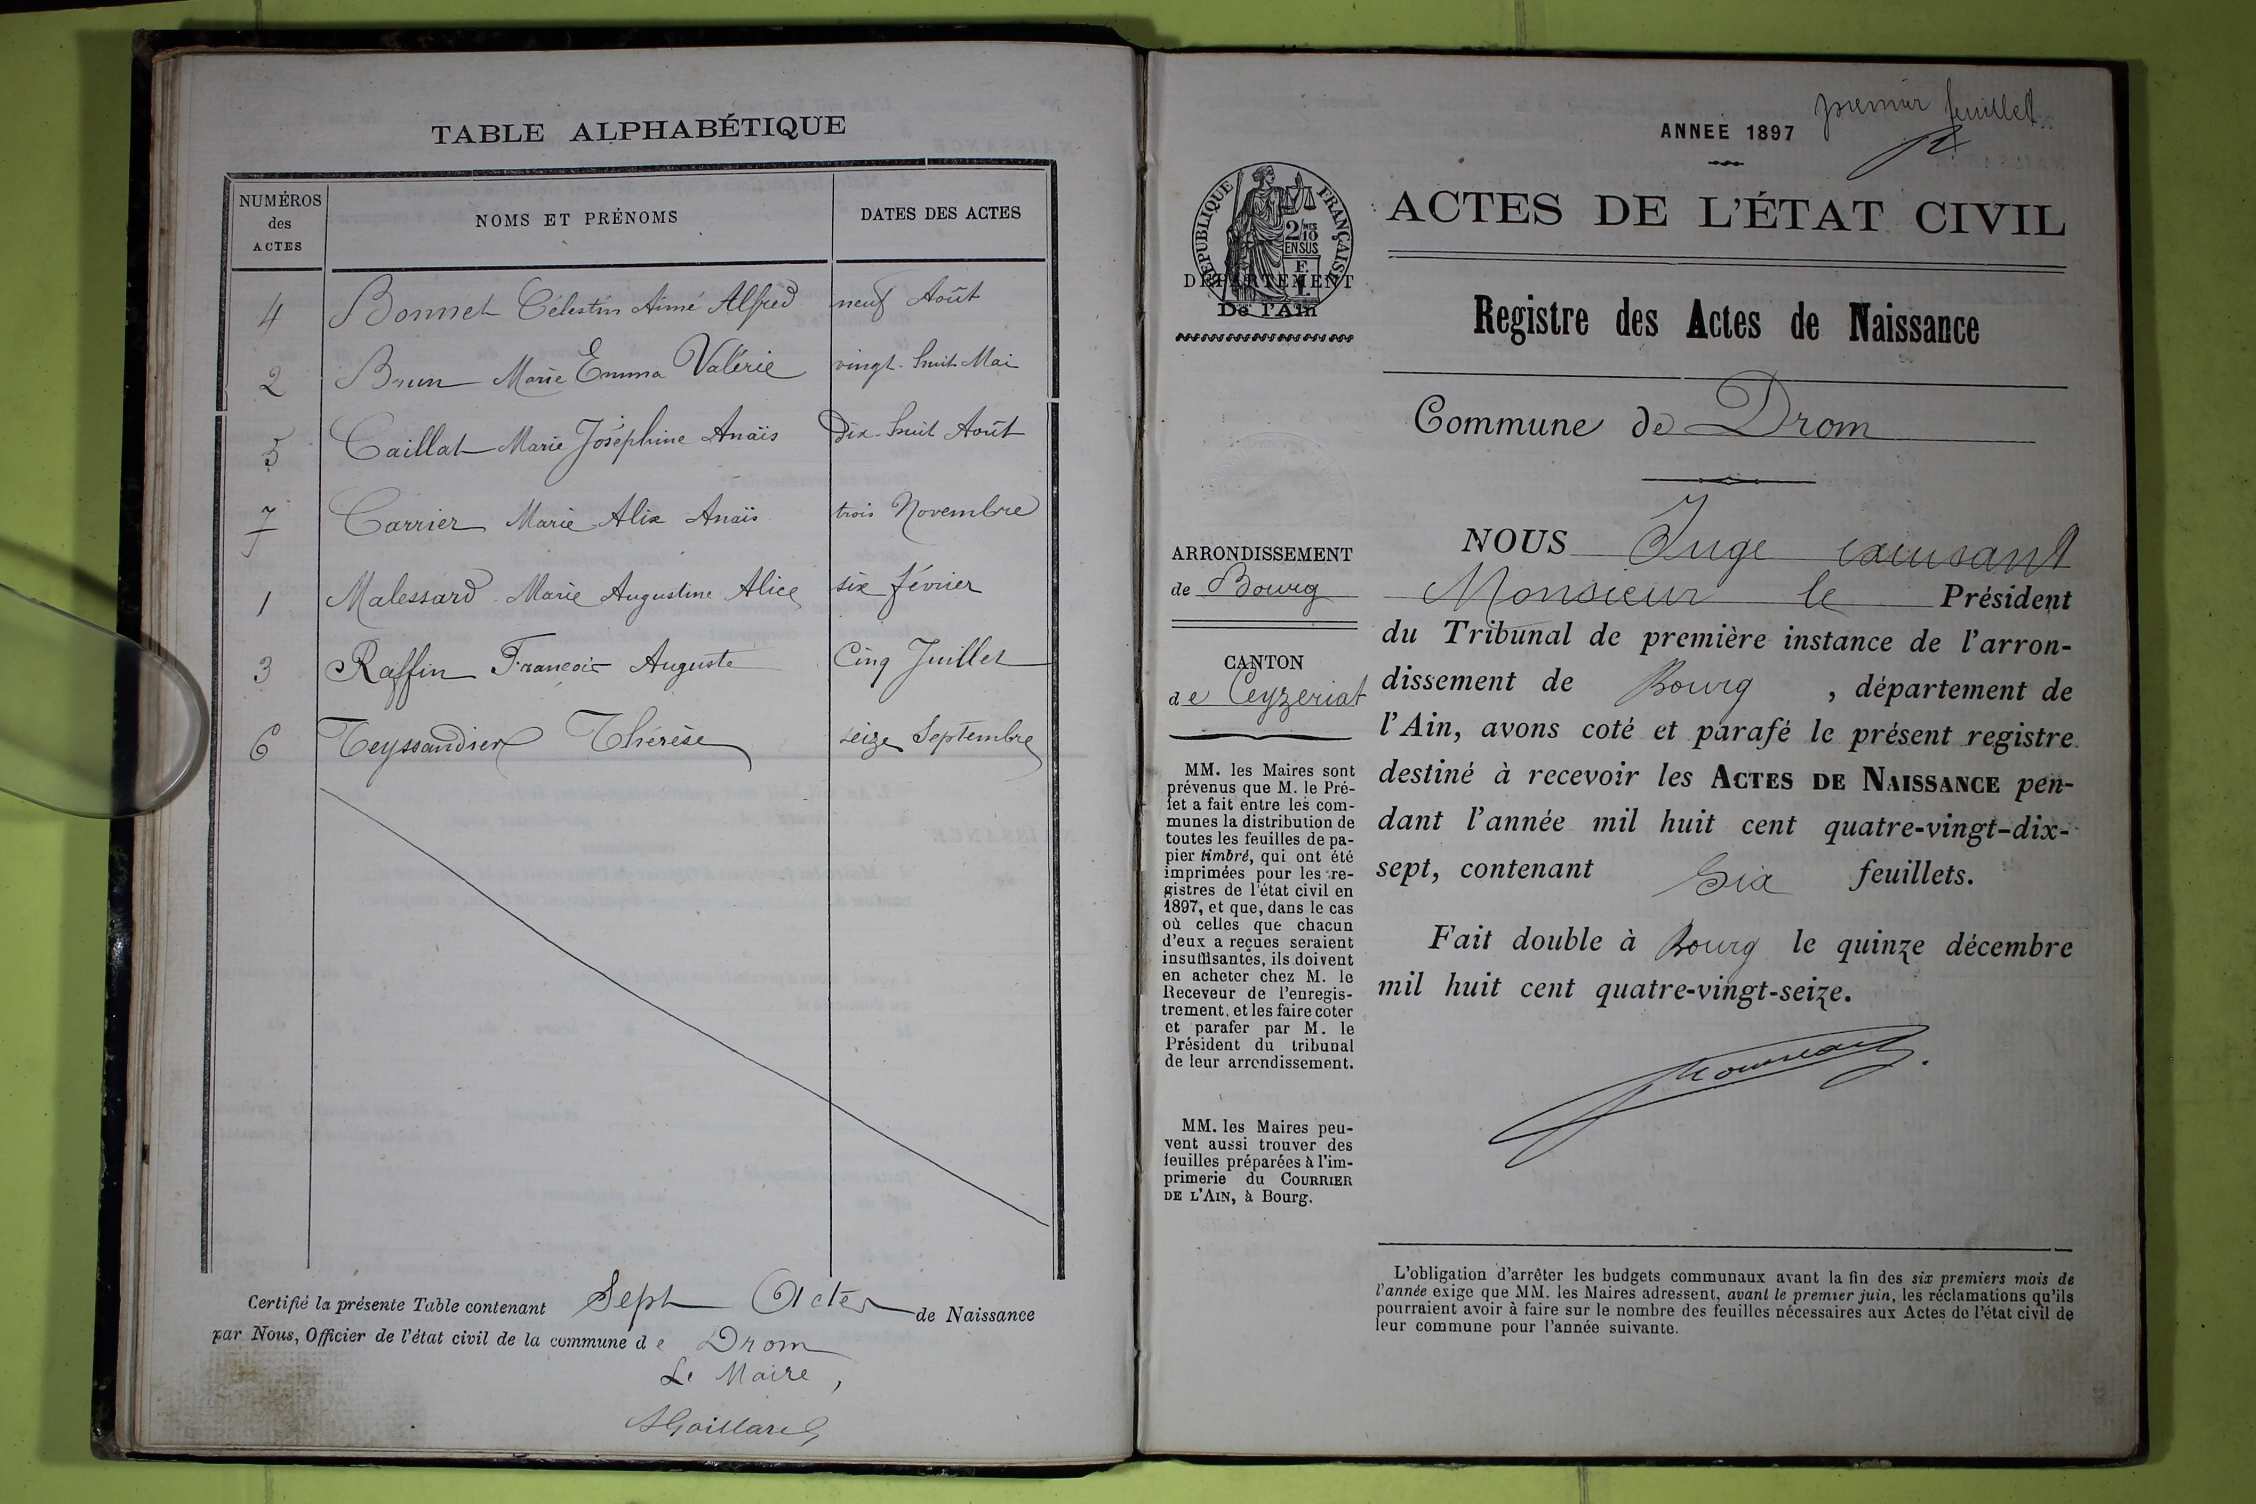 TABLE ALPHABÉTIQUE
NUMÉROS des ACTES
NOMS ET PRÉNOMS
DATES DES ACTES
4 Bonnet Célestin Aimé Alfred neuf Août
2 Brun Marie Emma Valérie vingt-huit Mai
5 Caillat Marie Joséphine Anaïs Dix-huit Août
7 Carrier Marie Alix Anaïs trois Novembre
1 Malessard Marie Augustine Alice six février
3 Raffin François Auguste Cinq Juillet
6 Teyssandier Thérèse seize Septembre
Certifié la présente Table contenant Sept Actes de Naissance
par Nous, Officier de l'état civil de la commune de Drom
Le Maire,
AGaillard
premier feuillet
ANNEE 1897
RÉPUBLIQUE FRANÇAISE
2/10mes
EN SUS
DÉPARTEMENT
De l'Ain
ACTES DE L'ÉTAT CIVIL
Registre des Actes de Naissance
Commune de Drom
ARRONDISSEMENT
de Bourg
CANTON
de Ceyzeriat
MM. les Maires sont
prévenus que M. le Pré-
fet a fait entre les com-
munes la distribution de
toutes les feuilles de pa-
pier timbré, qui ont été
imprimées pour les re-
gistres de l'état civil en
1897, et que, dans le cas
où celles que chacun
d'eux a reçues seraient
insuffisantes, ils doivent
en acheter chez M. le
Receveur de l'enregis-
trement, et les faire coter
et parafer par M. le
Président du tribunal
de leur arrondissement.
MM. les Maires peu-
vent aussi trouver des
feuilles préparées à l'im-
primerie du COURRIER
DE L'AIN, à Bourg.
NOUS Juge excusant
Monsieur le Président
du Tribunal de première instance de l'arron-
dissement de Bourg, département de
l'Ain, avons coté et parafé le présent registre
destiné à recevoir les ACTES DE NAISSANCE pen-
dant l'année mil huit cent quatre-vingt-dix-
sept, contenant Six feuillets.
Fait double à Bourg le quinze décembre
mil huit cent quatre-vingt-seize.
L'obligation d'arrêter les budgets communaux avant la fin des six premiers mois de
l'année exige que MM. les Maires adressent, avant le premier juin, les réclamations qu'ils
pourraient avoir à faire sur le nombre des feuilles nécessaires aux Actes de l'état civil de
leur commune pour l'année suivante.